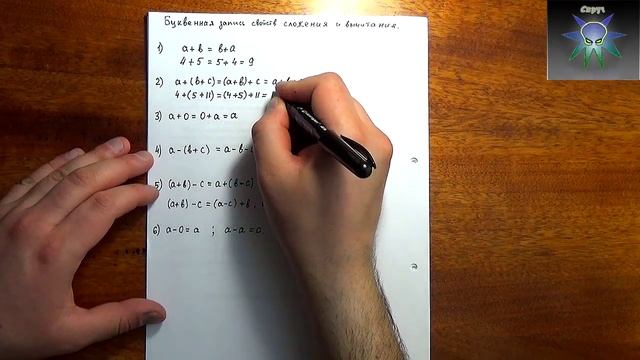 Спрут
Буквенная запись свойств сложения и вычитания.
1) a+b = b+a
4+5 = 5+4 = 9
2) a+(b+c)=(a+b)+c =
4+(5+11)=(4+5)+11=
3) a+0=0+a=a
4) a-(b+c) = a-b-
5) (a+b)-c = a+(b-c)
(a+b)-c=(a-c)+b,
6) a-0=a ; a-a=0